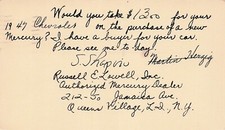 Would you take $1300 for your
1947 Chevrolet on the purchase of a new
Mercury? I have a buyer for your car.
Please see me to day!
S. Shapiro Martin Herzig
Russell E. Lowell, Inc.
Authorized Mercury Dealer
212-50 Jamaica Ave
Queens Village, L.I., N.Y.